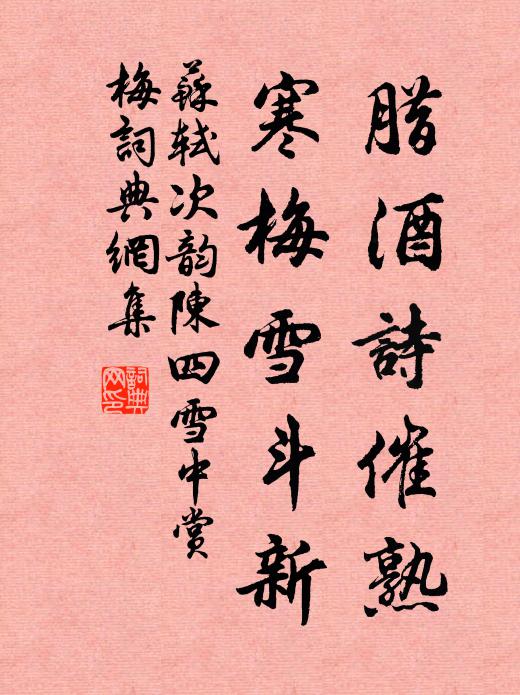 腊酒詩催熟
寒梅雪斗新
蘇軾次韵陳四雪中賞
梅詞典網集
詞典
网印